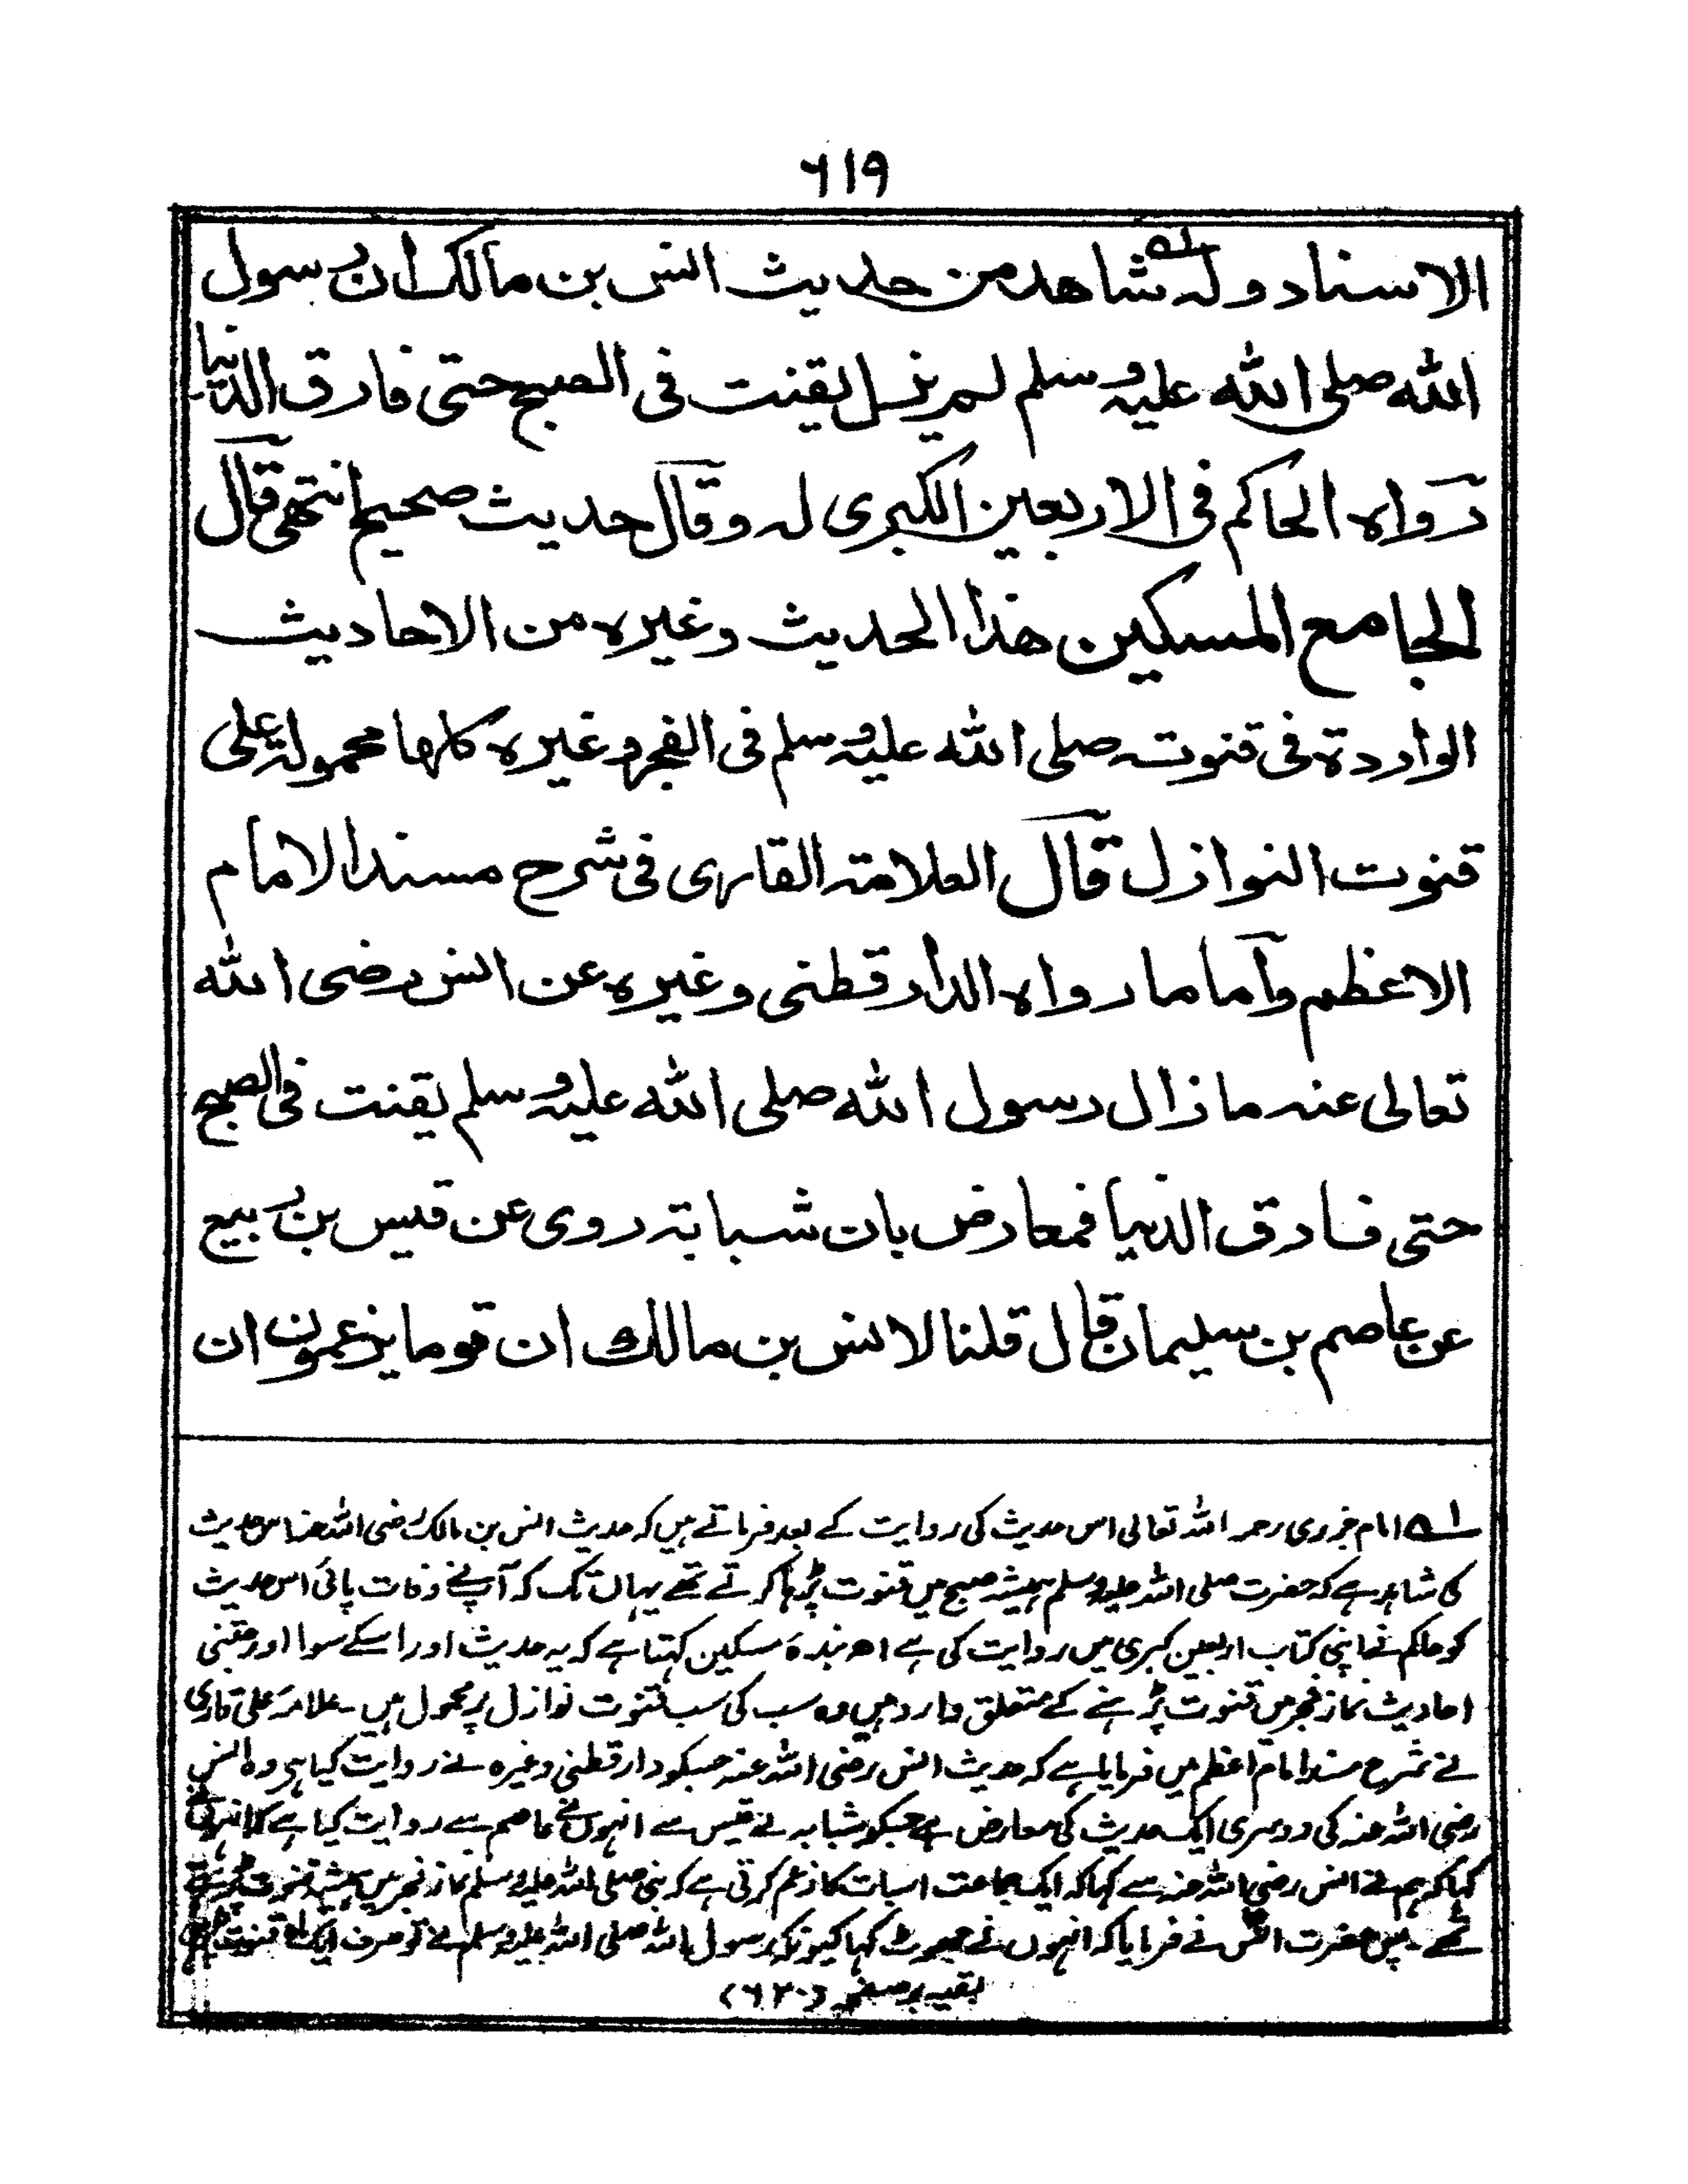 ٦١٩
الاسناد وله شاهد من حديث انس بن مالك ان رسول
الله صلى الله عليه وسلم لم يزل يقنت فى الصبح حتى فارق الدنيا
رواه الحاكم فى الاربعين الكبرى له وقال حديث صحيح انتهى قال
الجامع المسكين هذا الحديث وغيره من الاحاديث
الواردة فى قنوته صلى الله عليه وسلم فى الفجر وغيره كلها محمولة على
قنوت النوازل قال العلامة القارى فى شرح مسند الامام
الاعظم واما ما رواه الدارقطنى وغيره عن انس رضى الله
تعالى عنه ما زال رسول الله صلى الله عليه وسلم يقنت فى الصبح
حتى فارق الدنيا فمعارض بان شبابة روى عن قيس بن ربيع
عن عاصم بن سليمان قال قلنا لانس بن مالك ان قوما يزعمون ان
١ے امام جزری رحمہ اللہ تعالی اس حدیث کی روایت کے بعد فرماتے ہیں کہ حدیث انس بن مالک رضی اللہ عنہ اس حدیث
کی شاہد ہے کہ حضرت صلی اللہ علیہ وسلم ہمیشہ صبح میں قنوت پڑہا کرتے تھے یہاں تک کہ آپنے وفات پائی اس حدیث
کو حاکم نے اپنی کتاب اربعین کبری میں روایت کی ہے اھ بندہ مسکین کہتا ہے کہ یہ حدیث اور اسکے سوا اور جتنی
احادیث نماز فجر میں قنوت پڑہنے کے متعلق وارد ہیں وہ سب کی سب قنوت نوازل پر محمول ہیں ۔ علامہ علی قاری
نے شرح مسند امام اعظم میں فرمایا ہے کہ حدیث انس رضی اللہ عنہ جسکو دارقطنی وغیرہ نے روایت کیا ہی وہ انس
رضی اللہ عنہ کی دوسری ایک حدیث کی معارض ہے جسکو شبابہ نے قیس سے انہوں نے عاصم سے روایت کیا ہے کہ انہوں نے
کہا کہ ہم نے انس رضی اللہ عنہ سے کہا کہ ایک جماعت اسبات کا زعم کرتی ہے کہ نبی صلی اللہ علیہ وسلم نماز فجر میں ہمیشہ قنوت پڑہتے
تھے ۔ پس حضرت انس نے فرمایا کہ انہوں نے جھوٹ کہا کیونکہ رسول اللہ صلی اللہ علیہ وسلم نے تو صرف ایک ماہ قنوت
بقیہ بر صفحہ (٦٢٠)